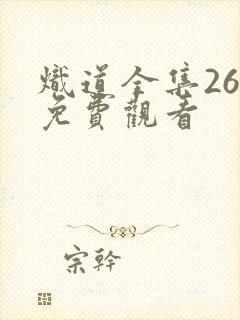 熾道全集26
免費觀看
宗幹